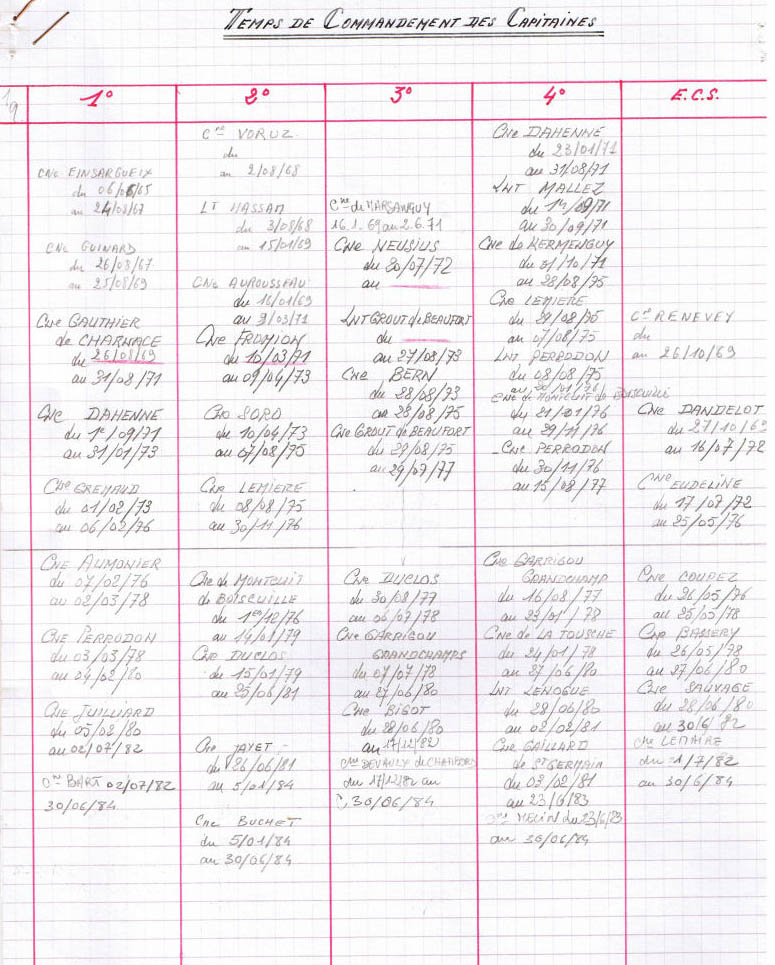 TEMPS DE COMMANDEMENT DES CAPITAINES
1°
CNE EINSARGUEIX
du 06/06/65
au 24/08/67
CNE GUINARD
du 26/08/67
au 25/08/69
CNE GAUTHIER
de CHARNACE
du 26/08/69
au 31/08/71
CNE DAHENNE
du 1e/09/71
au 31/01/73
CNE GREMAUD
du 01/02/73
au 06/02/76
CNE AUMONIER
du 07/02/76
au 02/03/78
CNE PERRODON
du 03/03/78
au 04/02/80
CNE JUILLIARD
du 05/02/80
au 02/07/82
CNE BART 02/07/82
30/06/84
2°
CNE VORUZ
du
au 2/08/68
LT HASSAM
du 3/08/68
au 15/01/69
CNE AUROUSSEAU
du 16/01/69
au 9/03/71
CNE FROMION
du 10/03/71
au 09/04/73
CNE SORO
du 10/04/73
au 07/08/75
CNE LEMIERE
du 08/08/75
au 30/11/76
CNE de MONTCUIT
de BOISCUILLE
du 1er/12/76
au 14/01/79
CNE DUCLOS
du 15/01/79
au 25/06/81
CNE JAYET
du 26/06/81
au 5/01/84
CNE BUCHET
du 5/01/84
au 30/06/84
3°
CNE de MARSANGUY
16.1.69 au 2.6.71
CNE NEUSIUS
du 30/07/72
au
LNT GROUT de BEAUFORT
du
au 27/08/73
CNE BERN
du 28/08/73
au 28/08/75
CNE GROUT de BEAUFORT
du 29/08/75
au 29/07/77
CNE DUCLOS
du 30/08/77
au 06/07/78
CNE GARRIGOU
GRANDCHAMPS
du 07/07/78
au 27/06/80
CNE BIGOT
du 28/06/80
au 17/12/82
CNE DEVAULX de CHAMBORD
du 17/12/82 au
30/06/84
4°
CNE DAHENNE
du 23/01/71
au 31/08/71
LNT MALLEZ
du 1er/09/71
au 30/09/71
CNE de KERMENGUY
du 01/10/71
au 28/08/75
CNE LEMIERE
du 29/08/75
au 07/08/75
LNT PERRODON
du 08/08/75
au 20/01/76
CNE de MONTCUIT de BOISCUILLE
du 21/01/76
au 29/11/76
CNE PERRODON
du 30/11/76
au 15/08/77
CNE GARRIGOU
GRANDCHAMP
du 16/08/77
au 23/01/78
CNE de LA TOUSCHE
du 24/01/78
au 27/06/80
LNT LENOGUE
du 28/06/80
au 02/02/81
CNE GAILLARD
de ST GERMAIN
du 03/02/81
au 23/6/83
MELIN du 23/6/83
au 30/06/84
E.C.S.
CNE RENEVEY
du
au 26/10/69
CNE DANDELOT
du 27/10/69
au 16/07/72
CNE EUDELINE
du 17/07/72
au 25/05/76
CNE COUPEZ
du 26/05/76
au 25/05/78
CNE BASSERY
du 26/05/78
au 27/06/80
CNE SAUVAGE
du 28/06/80
au 30/6/82
CNE LEMAIRE
du 1/7/82
au 30/6/84